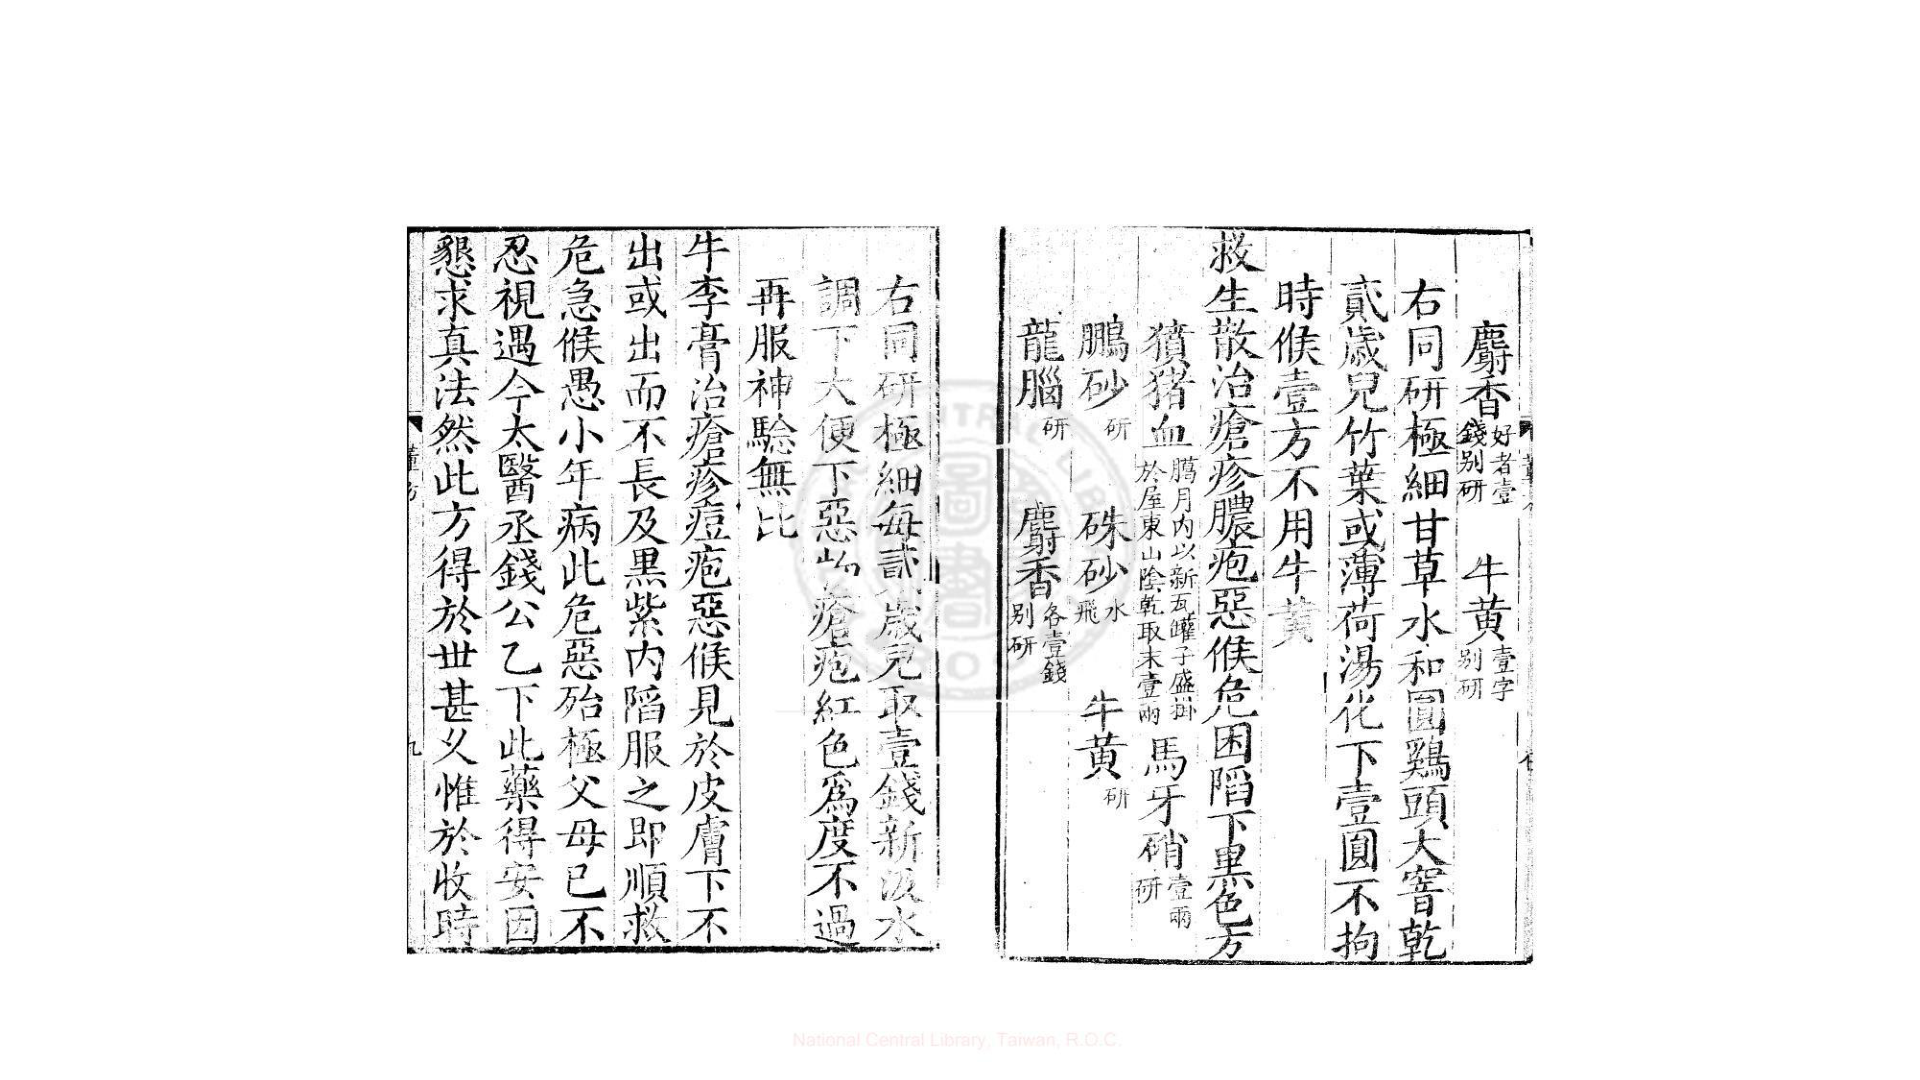 麝香好者壹錢别研 牛黄壹字别研
右同研極細甘草水和圓鷄頭大窨乾
貳歲兒竹葉或薄荷湯化下壹圓不拘
時候壹方不用牛黄
救生散治瘡疹膿疱惡候危困陷下黒色方
獖猪血臈月内以新瓦罐子盛掛於屋東山陰乾取末壹兩 馬牙硝壹兩研
鵬砂研 硃砂水飛 牛黄研
龍腦研 麝香各壹錢别研
右同研極細每貳歲兒取壹錢新汲水
調下大便下惡物瘡疱紅色爲度不過
再服神驗無比
牛李膏治瘡疹痘疱惡候見於皮膚下不
出或出而不長及黒紫内陷服之即順救
危急候愚小年病此危惡殆極父母已不
忍視遇今太醫丞錢公乙下此藥得安因
懇求真法然此方得於世甚乆惟於收時
董方
九
National Central Library, Taiwan, R.O.C.